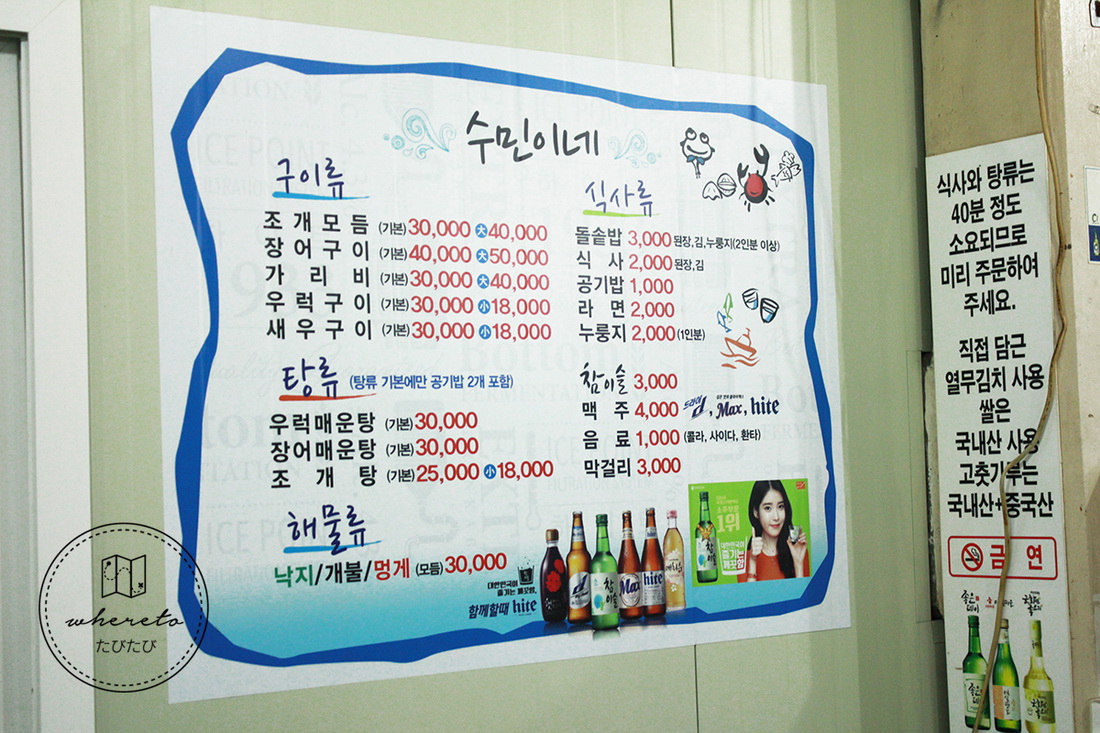 수민이네
구이류
조개모듬 (기본)30,000 大40,000
장어구이 (기본)40,000 大50,000
가리비 (기본)30,000 大40,000
우럭구이 (기본)30,000 小18,000
새우구이 (기본)30,000 小18,000
탕류 (탕류 기본에만 공기밥 2개 포함)
우럭매운탕 (기본)30,000
장어매운탕 (기본)30,000
조개탕 (기본)25,000 小18,000
해물류
낙지/개불/멍게 (모듬)30,000
식사류
돌솥밥 3,000 된장,김,누룽지(2인분 이상)
식사 2,000 된장,김
공기밥 1,000
라면 2,000
누룽지 2,000 (1인분)
참이슬 3,000
맥주 4,000 d, Max, hite
음료 1,000 (콜라, 사이다, 환타)
막걸리 3,000
대한민국이
즐기는 깨끗함,
함께할때 hite
참이슬
Max
hite
1위
대한민국이
즐기는
깨끗함
식사와 탕류는
40분 정도
소요되므로
미리 주문하여
주세요.
직접 담근
열무김치 사용
쌀은
국내산 사용
고춧가루는
국내산+중국산
금연
좋은데이
whereto
たびたび